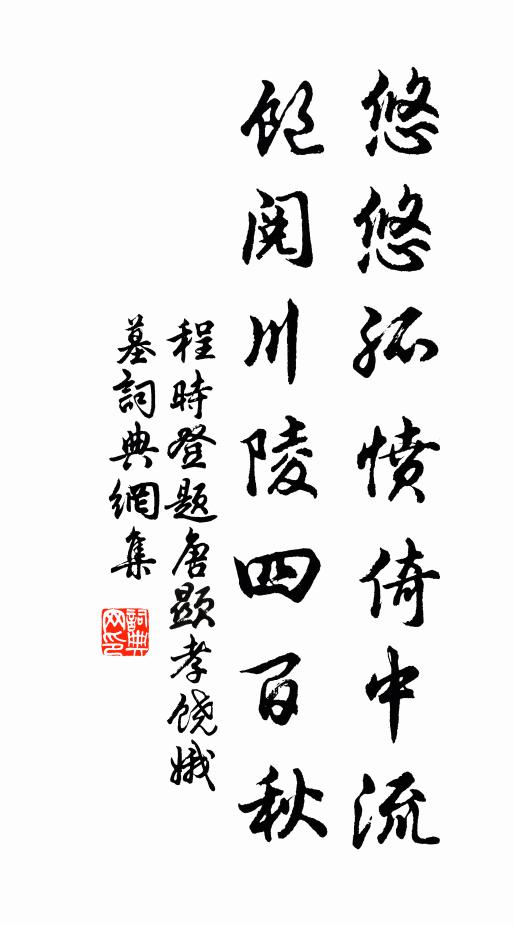 悠悠孤憤倚中流
飽閱川陵四百秋
程時登題唐顯孝饒娥
墓詞典網集
詞典網印